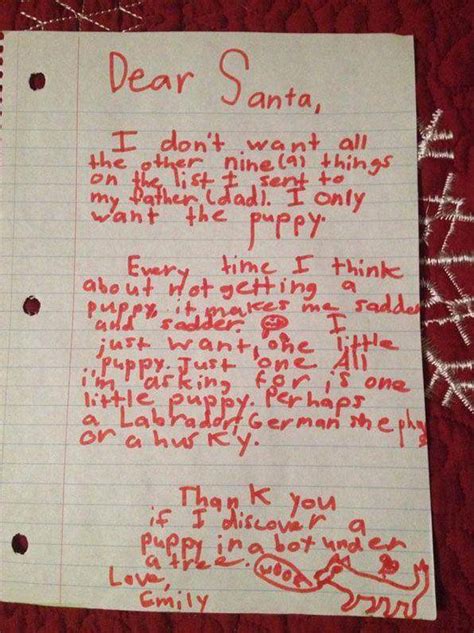 Dear Santa,
I don't want all
the other nine(9) things
on the list I sent to
my father (dad). I only
want the puppy.
Every time I think
about not getting a
puppy, it makes me sadder
and sadder. I
just want, one little
puppy. Just one All
i'm asking for is one
little puppy. Perhaps
a Labrador, German shephe
or a husky.
Thank you
if I discover a
puppy in a box under
a tree.
woof
Love,
Emily